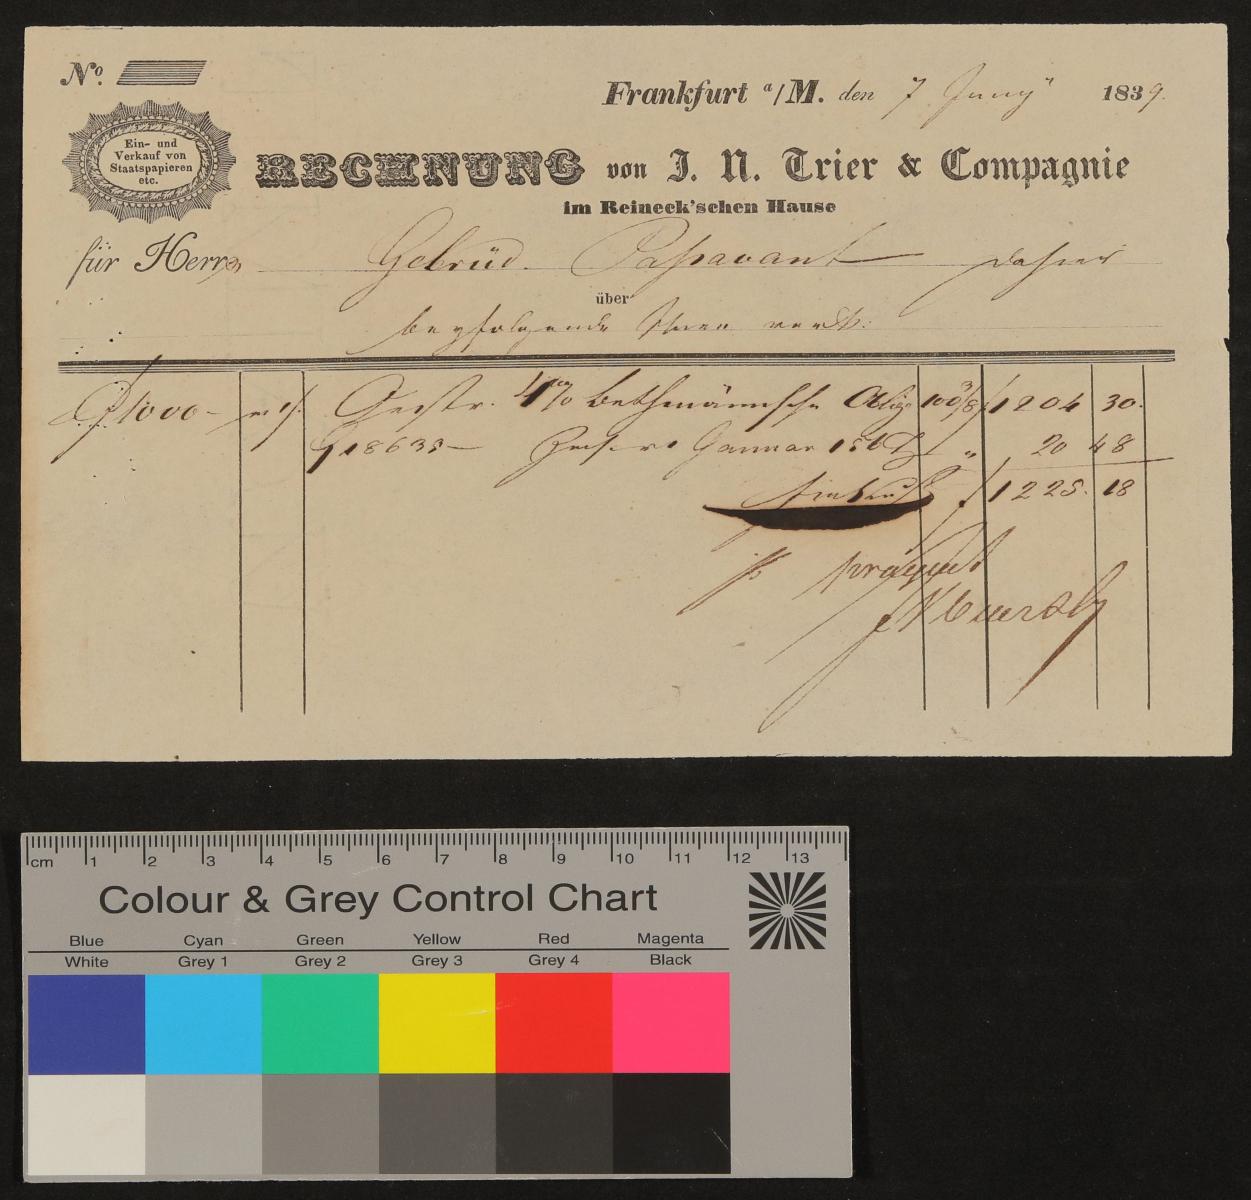 No.
Frankfurt a/M. den 7 Juny 1839.
Ein- und
Verkauf von
Staatspapieren
etc.
RECHNUNG von J. N. Trier & Compagnie
im Reineck'schen Hause
für Herrn Gebrüd. Passavant dahier
über
beyfolgende Ihnen verk:
1000 – Oestr. 4% bethmännische Oblig 100 3/8 f 1204 30.
18633 – Zins v. 1 Januar 156 T " 20 48
f 1225. 18
cm 1 2 3 4 5 6 7 8 9 10 11 12 13
Colour & Grey Control Chart
Blue Cyan Green Yellow Red Magenta
White Grey 1 Grey 2 Grey 3 Grey 4 Black